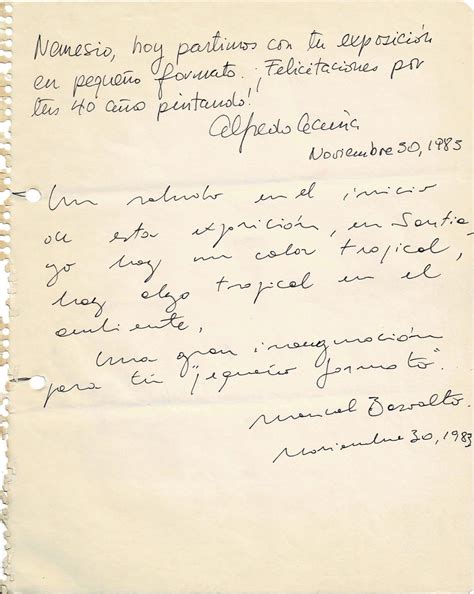 Nemesio, hoy partimos con tu exposición
en pequeño formato. ¡Felicitaciones por
tus 40 año pintando!!
Alfredo
Noviembre 30, 1983
Un saludo en el inicio
de esta exposición, en Santia
go hay un calor tropical,
hay algo tropical en el
ambiente,
Una gran inauguración
para tú "pequeño formato".
Basoalto.
Noviembre 30, 1983